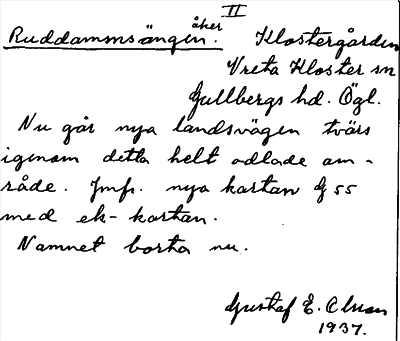 II
Ruddammsängen. åker Klostergården
Vreta Kloster sn
Gullbergs hd. Ögl.
Nu går nya landsvägen tvärs
igenom detta helt odlade om-
råde. Jmf. nya kartan G 55
med ek-kartan.
Namnet borta nu.
Gustaf E. Olsson
1937.